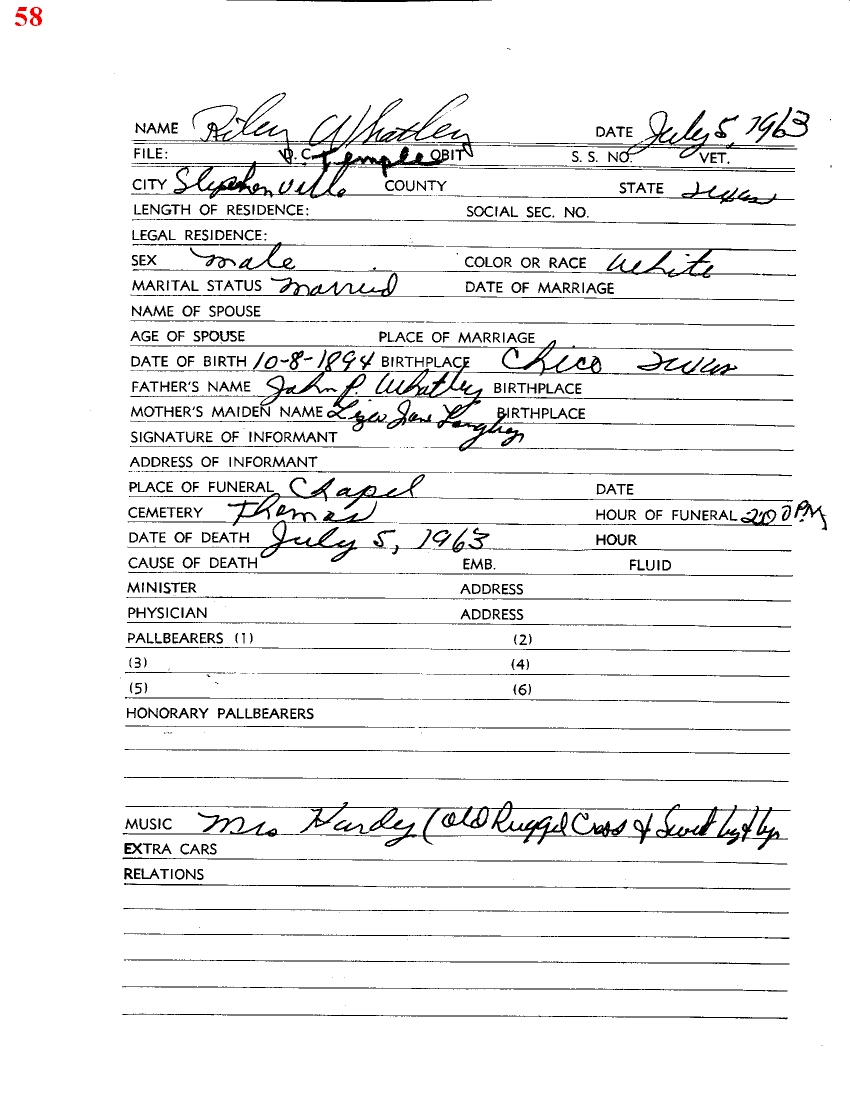 58
NAME Riley Whatley DATE July 5, 1963
FILE: D.C. Temple OBIT S. S. NO. VET.
CITY Stephenville COUNTY STATE Texas
LENGTH OF RESIDENCE: SOCIAL SEC. NO.
LEGAL RESIDENCE:
SEX male COLOR OR RACE White
MARITAL STATUS Married DATE OF MARRIAGE
NAME OF SPOUSE
AGE OF SPOUSE PLACE OF MARRIAGE
DATE OF BIRTH 10-8-1894 BIRTHPLACE Chico Texas
FATHER'S NAME John P. Whatley BIRTHPLACE
MOTHER'S MAIDEN NAME Jane BIRTHPLACE
SIGNATURE OF INFORMANT
ADDRESS OF INFORMANT
PLACE OF FUNERAL Chapel DATE
CEMETERY Thomas HOUR OF FUNERAL 2:00 PM
DATE OF DEATH July 5, 1963 HOUR
CAUSE OF DEATH EMB. FLUID
MINISTER ADDRESS
PHYSICIAN ADDRESS
PALLBEARERS (1) (2)
(3) (4)
(5) (6)
HONORARY PALLBEARERS
MUSIC Mrs Hardy (Old Rugged Cross & Sweet by & by
EXTRA CARS
RELATIONS